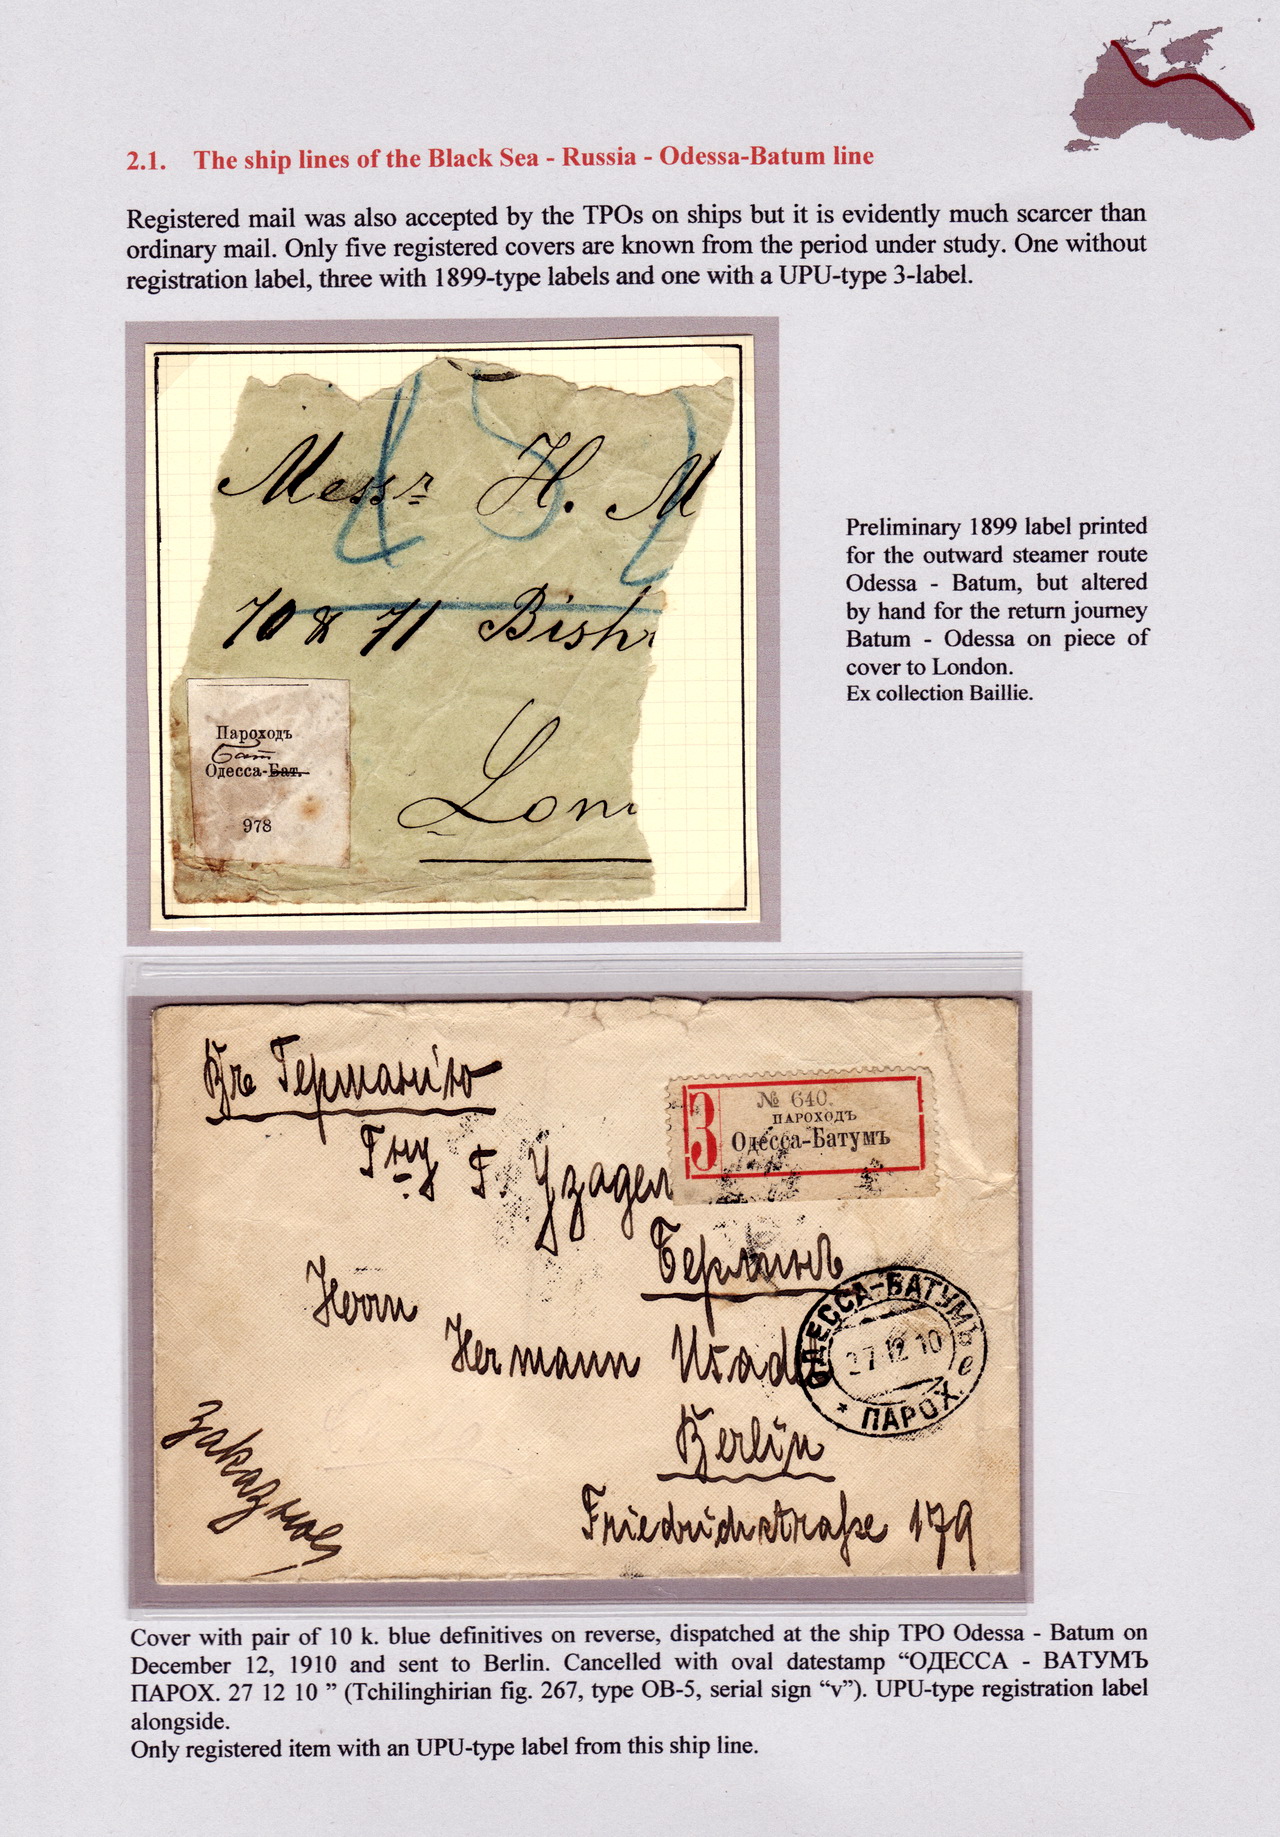 2.1. The ship lines of the Black Sea - Russia - Odessa-Batum line
Registered mail was also accepted by the TPOs on ships but it is evidently much scarcer than
ordinary mail. Only five registered covers are known from the period under study. One without
registration label, three with 1899-type labels and one with a UPU-type 3-label.
Messrs H. M
70 & 71 Bish
Пароходъ
Бат
Одесса-Бат.
978
Lon
Preliminary 1899 label printed
for the outward steamer route
Odessa - Batum, but altered
by hand for the return journey
Batum - Odessa on piece of
cover to London.
Ex collection Baillie.
Въ Германію
З
№ 640.
ПАРОХОДЪ
Одесса-Батумъ
Гну Г. Узадел
Берлинъ
Herrn
Hermann Usad
ОДЕССА-БАТУМЪ
27 12 10
* ПАРОХ.
Berlin
Заказное
Friedrichstraße 179
Cover with pair of 10 k. blue definitives on reverse, dispatched at the ship TPO Odessa - Batum on
December 12, 1910 and sent to Berlin. Cancelled with oval datestamp “ОДЕССА - ВАТУМЪ
ПАРОХ. 27 12 10 ” (Tchilinghirian fig. 267, type OB-5, serial sign “v”). UPU-type registration label
alongside.
Only registered item with an UPU-type label from this ship line.